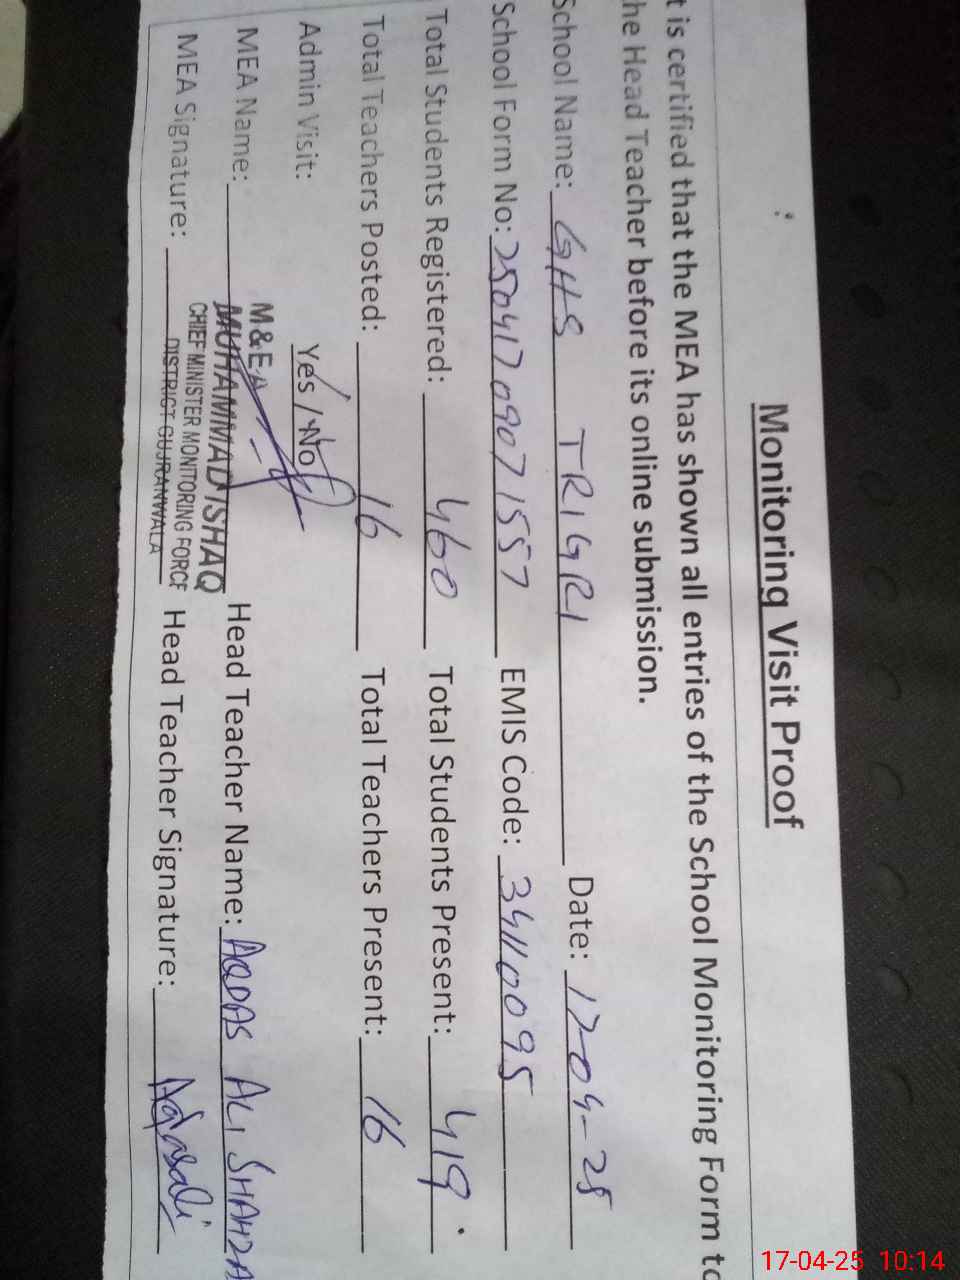 Monitoring Visit Proof
t is certified that the MEA has shown all entries of the School Monitoring Form to
he Head Teacher before its online submission.
School Name: GHS TRIGRI Date: 17-04-25
School Form No: 2504170907157 EMIS Code: 34110095
Total Students Registered: 460 Total Students Present: 419
Total Teachers Posted: 16 Total Teachers Present: 16
Admin Visit: Yes / No
M&EA
MEA Name: MUHAMMAD ISHAQ Head Teacher Name: AQDAS ALI SHAHZA
CHIEF MINISTER MONITORING FORCE
MEA Signature: DISTRICT GUJRANWALA Head Teacher Signature:
17-04-25 10:14